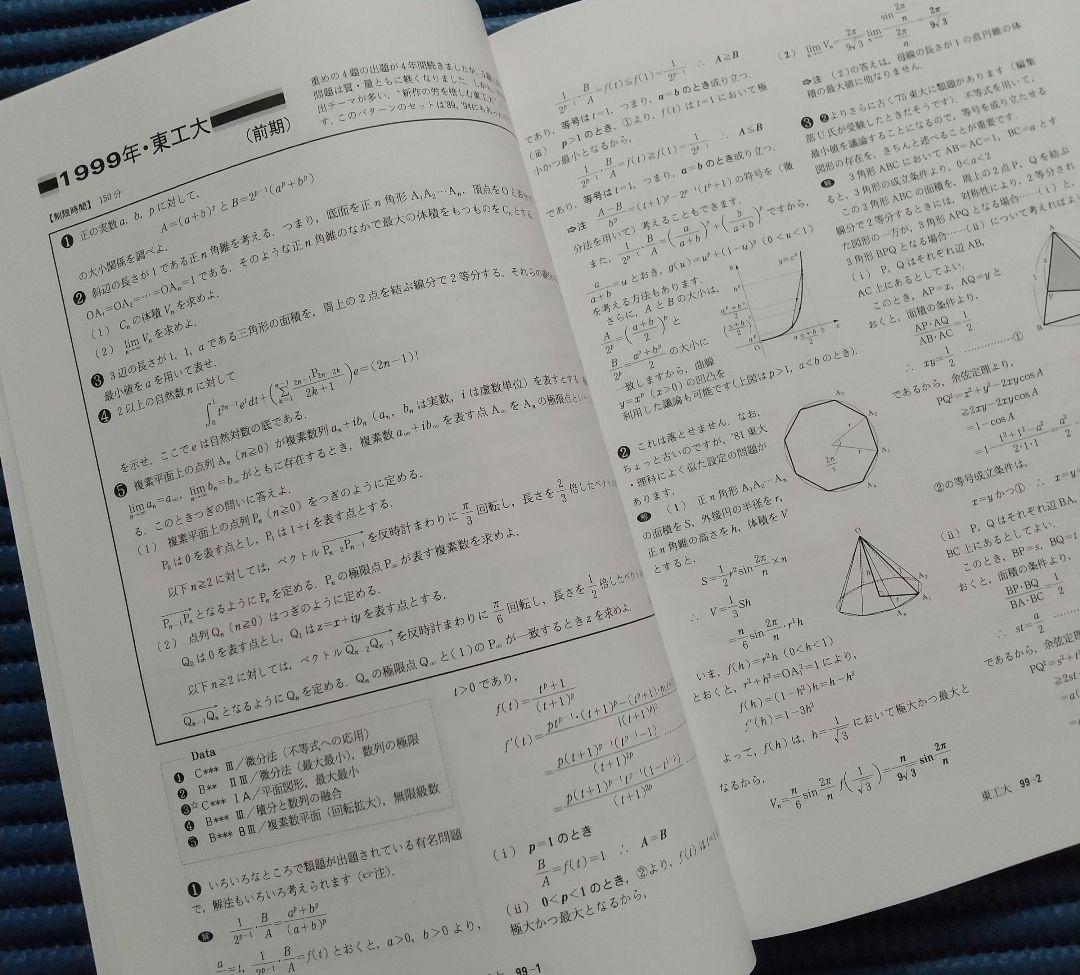 1999年・東工大
(前期)
重めの4題の出題が4年間続きましたが,
問題は質・量ともに軽くなりました.
出テーマが多い,
す.このパターンのセットは'89, '94にも
【制限時間】 150分
❶ 正の実数a, b, pに対して,
A=(a+b)^p と B=2^{p-1}(a^p+b^p)
の大小関係を調べよ.
❷ 斜辺の長さが1である正n角錐を考える.つまり,底面を正n角形A₁A₂…Aₙ,頂点をOと
OA₁=OA₂=…=OAₙ=1である.そのような正n角錐のなかで最大の体積をもつものをCₙとする
(1) Cₙの体積Vₙを求めよ.
(2) lim_{n→∞} Vₙを求めよ.
❸ 3辺の長さが1, 1, aである三角形の面積を,周上の2点を結ぶ線分で2等分する.それらの
最小値をaを用いて表せ.
❹ 2以上の自然数nに対して
∫₀¹ t^{2n-1}e^t dt+(Σ_{k=1}^{n-1} {}_{2n-1}P_{2n-2k}/(2k+1))e=(2n-1)!
を示せ.ここでeは自然対数の底である.
❺ 複素平面上の点列Aₙ (n≧0) が複素数列aₙ+ibₙ (aₙ, bₙは実数, iは虚数単位) を表すとする.
lim_{n→∞} aₙ=a∞, lim_{n→∞} bₙ=b∞がともに存在するとき,複素数a∞+ib∞を表す点A∞をAₙの極限点と
る.このときつぎの問いに答えよ.
(1) 複素平面上の点列Pₙ (n≧0) をつぎのように定める.
P₀は0を表す点とし, P₁は1+iを表す点とする.
以下n≧2に対しては,ベクトルPₙ₋₂Pₙ₋₁を反時計まわりにπ/3回転し,長さを2/3倍した
Pₙ₋₁Pₙとなるように Pₙを定める. Pₙの極限点P∞が表す複素数を求めよ.
(2) 点列Qₙ (n≧0) はつぎのように定める.
Q₀は0を表す点とし, Q₁はz=x+iyを表す点とする.
以下n≧2に対しては,ベクトルQₙ₋₂Qₙ₋₁を反時計まわりにπ/6回転し,長さを1/2倍した
Qₙ₋₁Qₙとなるように Qₙを定める. Qₙの極限点Q∞と(1)のP∞が一致するときzを求めよ.
Data
❶ C*** Ⅲ/微分法(不等式への応用)
❷ B** ⅡⅢ/微分法(最大最小),数列の極限
❸☆ C*** ⅠA/平面図形,最大最小
❹ B*** Ⅲ/積分と数列の融合
❺ B*** BⅢ/複素数平面(回転拡大),無限級数
❶ いろいろなところで類題が出題されている有名問題
で,解法もいろいろ考えられます(☞注).
解 1/2^{p-1}・B/A=(a^p+b^p)/(a+b)^p
a/b=t, 1/2^{p-1}・B/A=f(t)とおくと, a>0, b>0より,
t>0であり,
f(t)=(t^p+1)/(t+1)^p
f'(t)=
=p(t+1)^{p-1}(t^{p-1}-1)/(t+1)^{2p} ………
=p(t+1)^{p-1}t^{p-1}(1-t^{1-p})/(t+1)^{2p}
(i) p=1のとき
B/A=f(t)=1 ∴ A=B
(ii) 0<p<1のとき, ②より, f(t)はt=1
極大かつ最大となるから,
99-1
1/2^{p-1}・B/A=f(t)≦f(1)=1/2^{p-1} ∴ A≧B
であり,等号はt=1,つまり, a=bのとき成り立つ.
(iii) p>1のとき, ①より, f(t)はt=1において極
小かつ最小となるから,
1/2^{p-1}・B/A=f(t)≧f(1)=1/2^{p-1} ∴ A≦B
であり,等号はt=1,つまり, a=bのとき成り立つ.
☞注 (A-B)/b^p=(t+1)^p-2^{p-1}(t^p+1)の符号を(微
分法を用いて)考えることもできます.
また, 1/2^{p-1}・B/A=(a/(a+b))^p+(b/(a+b))^pですから,
a/(a+b)=uとおき, g(u)=u^p+(1-u)^p (0<u<1)
を考える方法もあります.
さらに, AとBの大小は,
A/2^p=((a+b)/2)^pと
B/2^p=(a^p+b^p)/2の大小に
一致しますから,曲線
y=x^p (x>0) の凹凸を
利用した議論も可能です(上図はp>1, a<bのとき).
❷ これは落とせません.なお,
ちょっと古いのですが, '81東大
・理科によく似た設定の問題が
あります.
解 (1) 正n角形A₁A₂…Aₙ
の面積をS,外接円の半径をr,
正n角錐の高さをh,体積をV
とすると,
S=1/2 r² sin 2π/n ×n
∴ V=1/3 Sh
=n/6 sin 2π/n・r²h
いま, f(h)=r²h (0<h<1)
とおくと, r²+h²=OA₁²=1により,
f(h)=(1-h²)h=h-h³
f'(h)=1-3h²
よって, f(h)は, h=1/√3 において極大かつ最大と
なるから,
Vₙ=n/6 sin 2π/n f(1/√3)=n/9√3 sin 2π/n
(2) lim_{n→∞} Vₙ=2π/9√3 lim_{n→∞} (sin 2π/n)/(2π/n)=2π/9√3
☞注 (2)の答えは,母線の長さが1の直円錐の体
積の最大値に他なりません.
❸ ❷よりさらに古く'75東大に類題があります(編集
部U氏が受験したときだそうです).不等式を用いて,
最小値を議論することになるので,等号を成り立たせる
図形の存在を,きちんと述べることが重要です.
解 3角形ABCにおいてAB=AC=1, BC=aとす
ると, 3角形の成立条件より, 0<a<2
この3角形ABCの面積を,周上の2点P, Qを結ぶ
線分で2等分するときには,対称性により, 2等分され
た図形の一方が, 3角形APQとなる場合……(i)と,
3角形BPQとなる場合……(ii)について考えればよい
(i) P, Qはそれぞれ辺AB,
AC上にあるとしてよい.
このとき, AP=x, AQ=yと
おくと,面積の条件より,
AP・AQ/AB・AC=1/2
∴ xy=1/2 ……………①
であるから,余弦定理より,
PQ²=x²+y²-2xycosA
≧2xy-2xycosA
=1-cosA
=1-(1²+1²-a²)/(2・1・1)=a²/2
②の等号成立条件は,
x=yかつ① ∴ x=y
(ii) P, Qはそれぞれ辺BA,
BC上にあるとしてよい.
このとき, BP=s, BQ=t
おくと,面積の条件より,
BP・BQ/BA・BC=1/2
∴ st=a/2 ……
であるから,余弦定
PQ²=s²+t²
≧2st
東工大 99-2